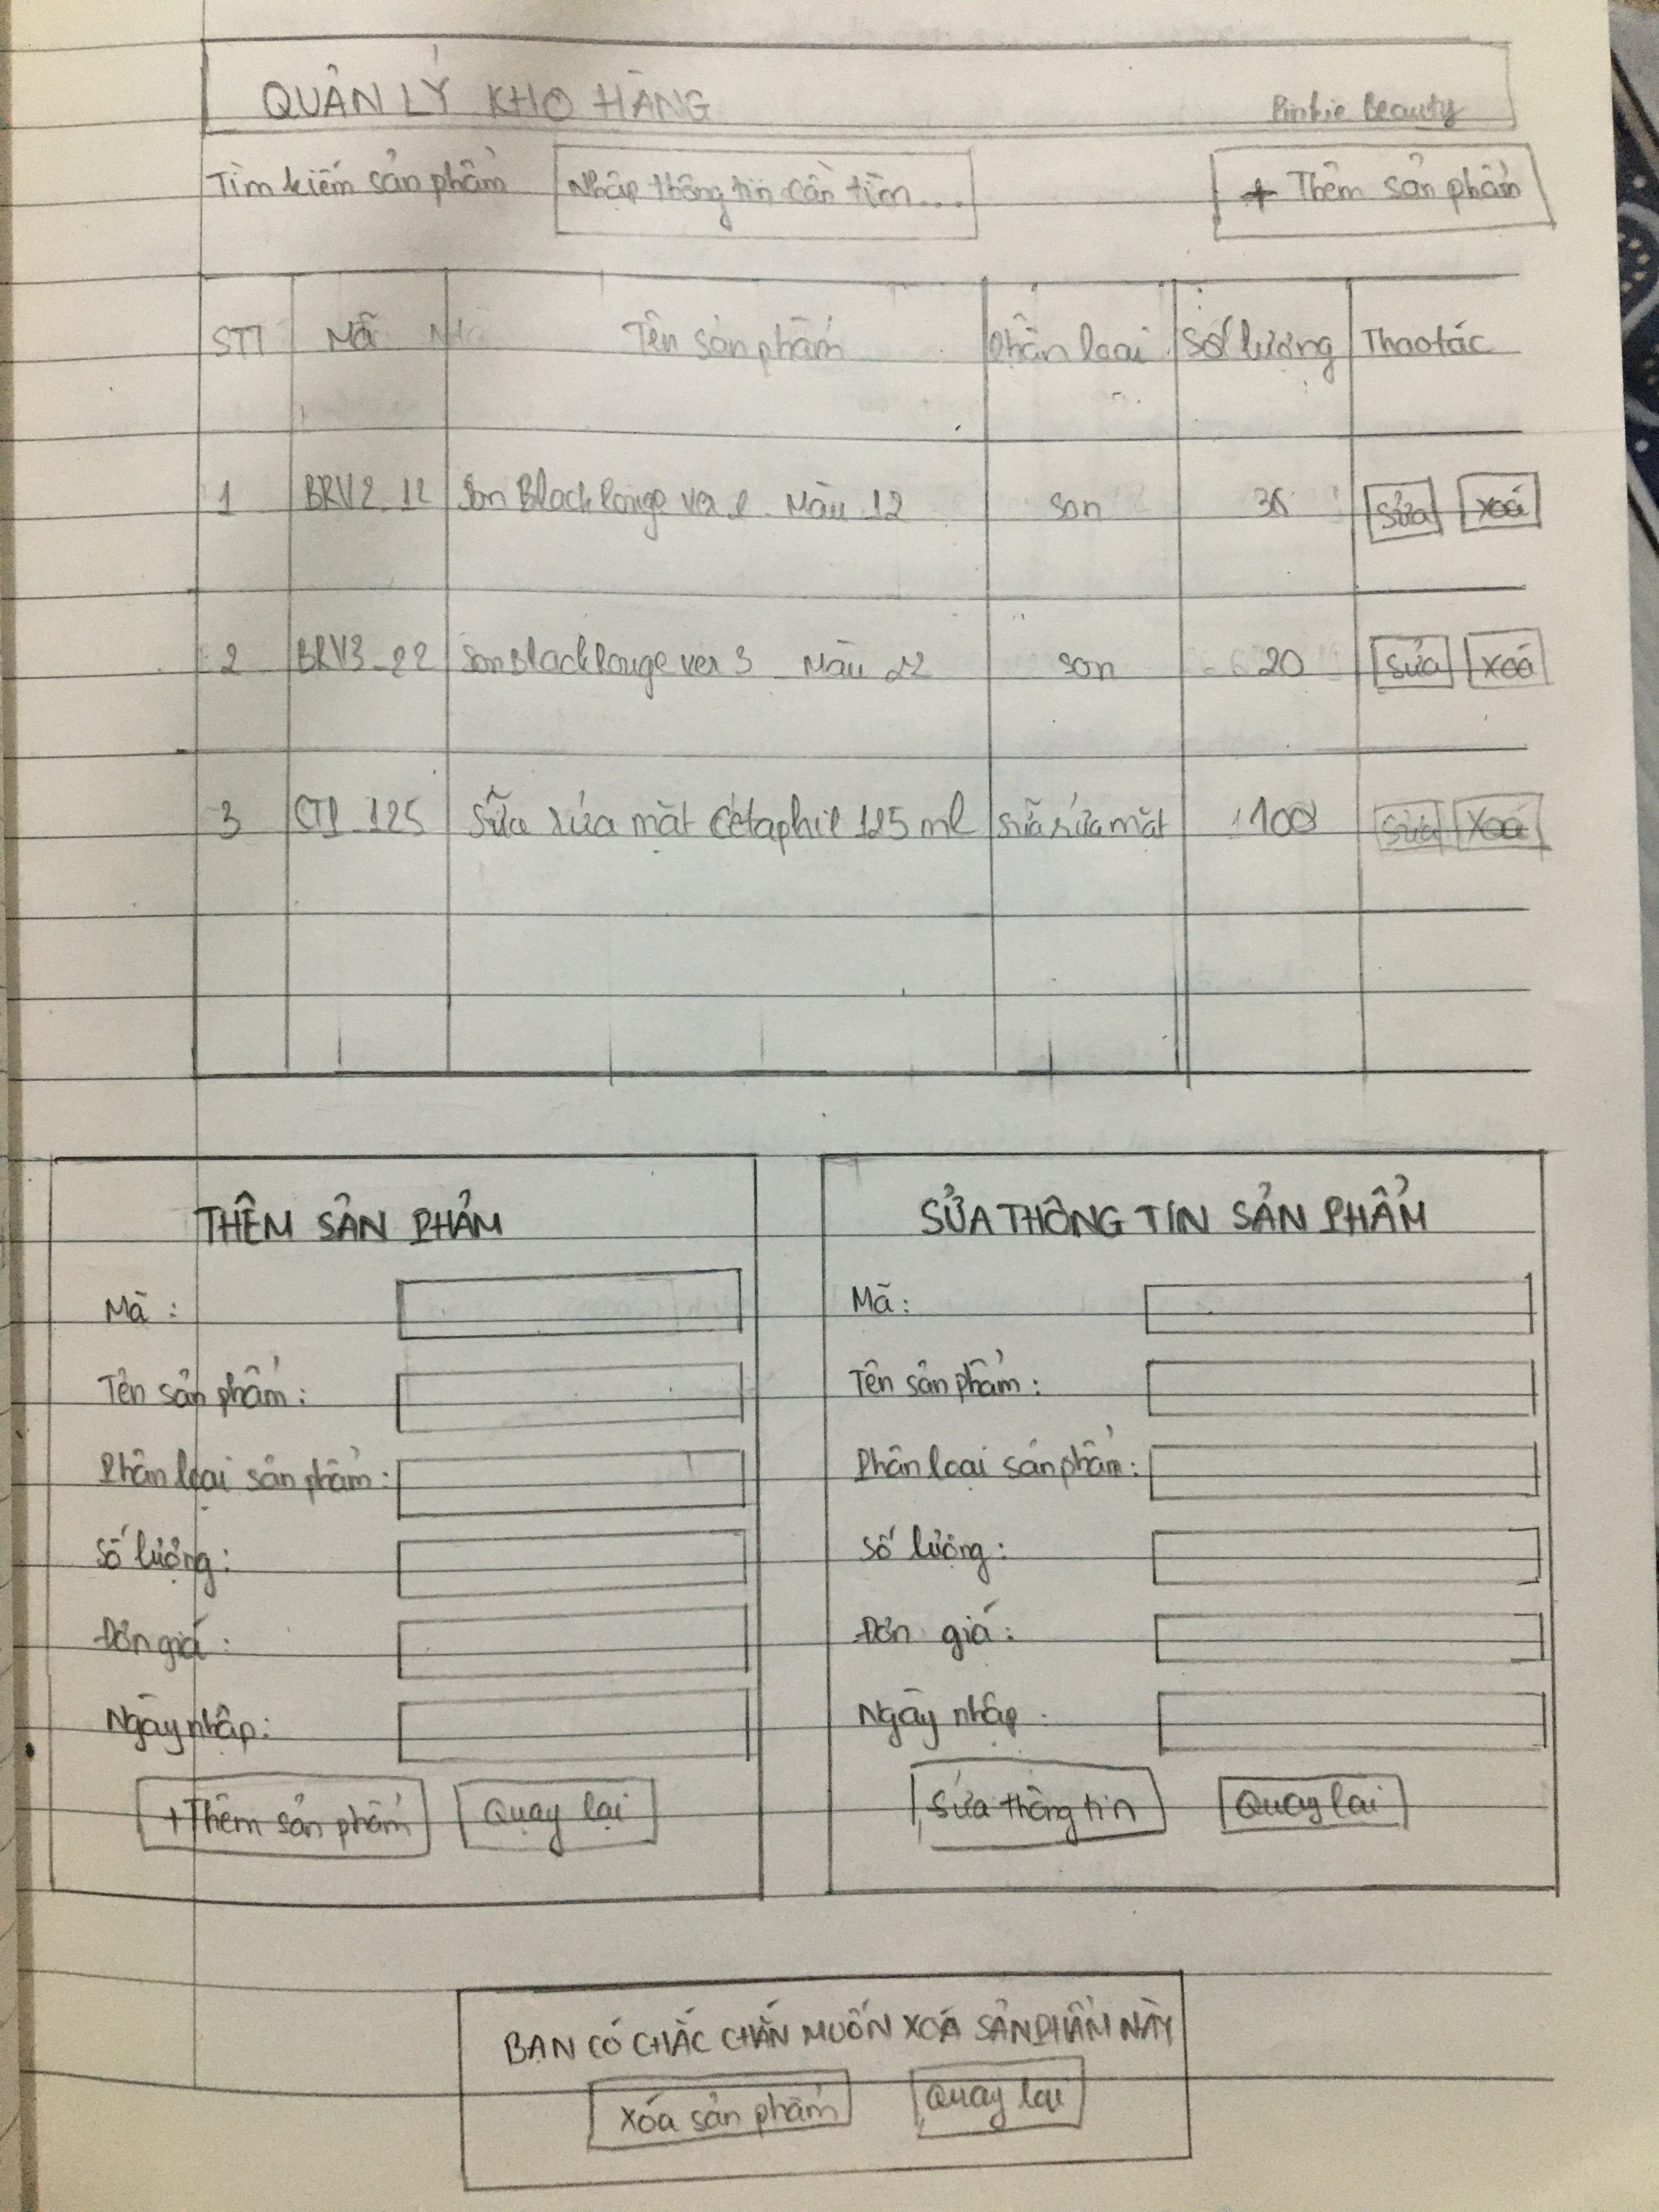 QUẢN LÝ KHO HÀNG Pinkie Beauty
Tìm kiếm sản phẩm Nhập thông tin cần tìm... + Thêm sản phẩm
STT Mã Tên sản phẩm Phân loại Số lượng Thao tác
1 BRV2_12 Son Black Rouge ver 2 _ Màu 12 son 36 Sửa Xoá
2 BRV3_22 Son Black Rouge ver 3 _ Màu 22 son 20 Sửa Xoá
3 CTP_125 Sữa rửa mặt Cetaphil 125 ml Sữa rửa mặt 100 Sửa Xoá
THÊM SẢN PHẨM
Mã :
Tên sản phẩm :
Phân loại sản phẩm :
Số lượng :
Đơn giá :
Ngày nhập :
+ Thêm sản phẩm Quay lại
SỬA THÔNG TIN SẢN PHẨM
Mã :
Tên sản phẩm :
Phân loại sản phẩm :
Số lượng :
Đơn giá :
Ngày nhập :
Sửa thông tin Quay lại
BẠN CÓ CHẮC CHẮN MUỐN XOÁ SẢN PHẨM NÀY
Xóa sản phẩm Quay lại